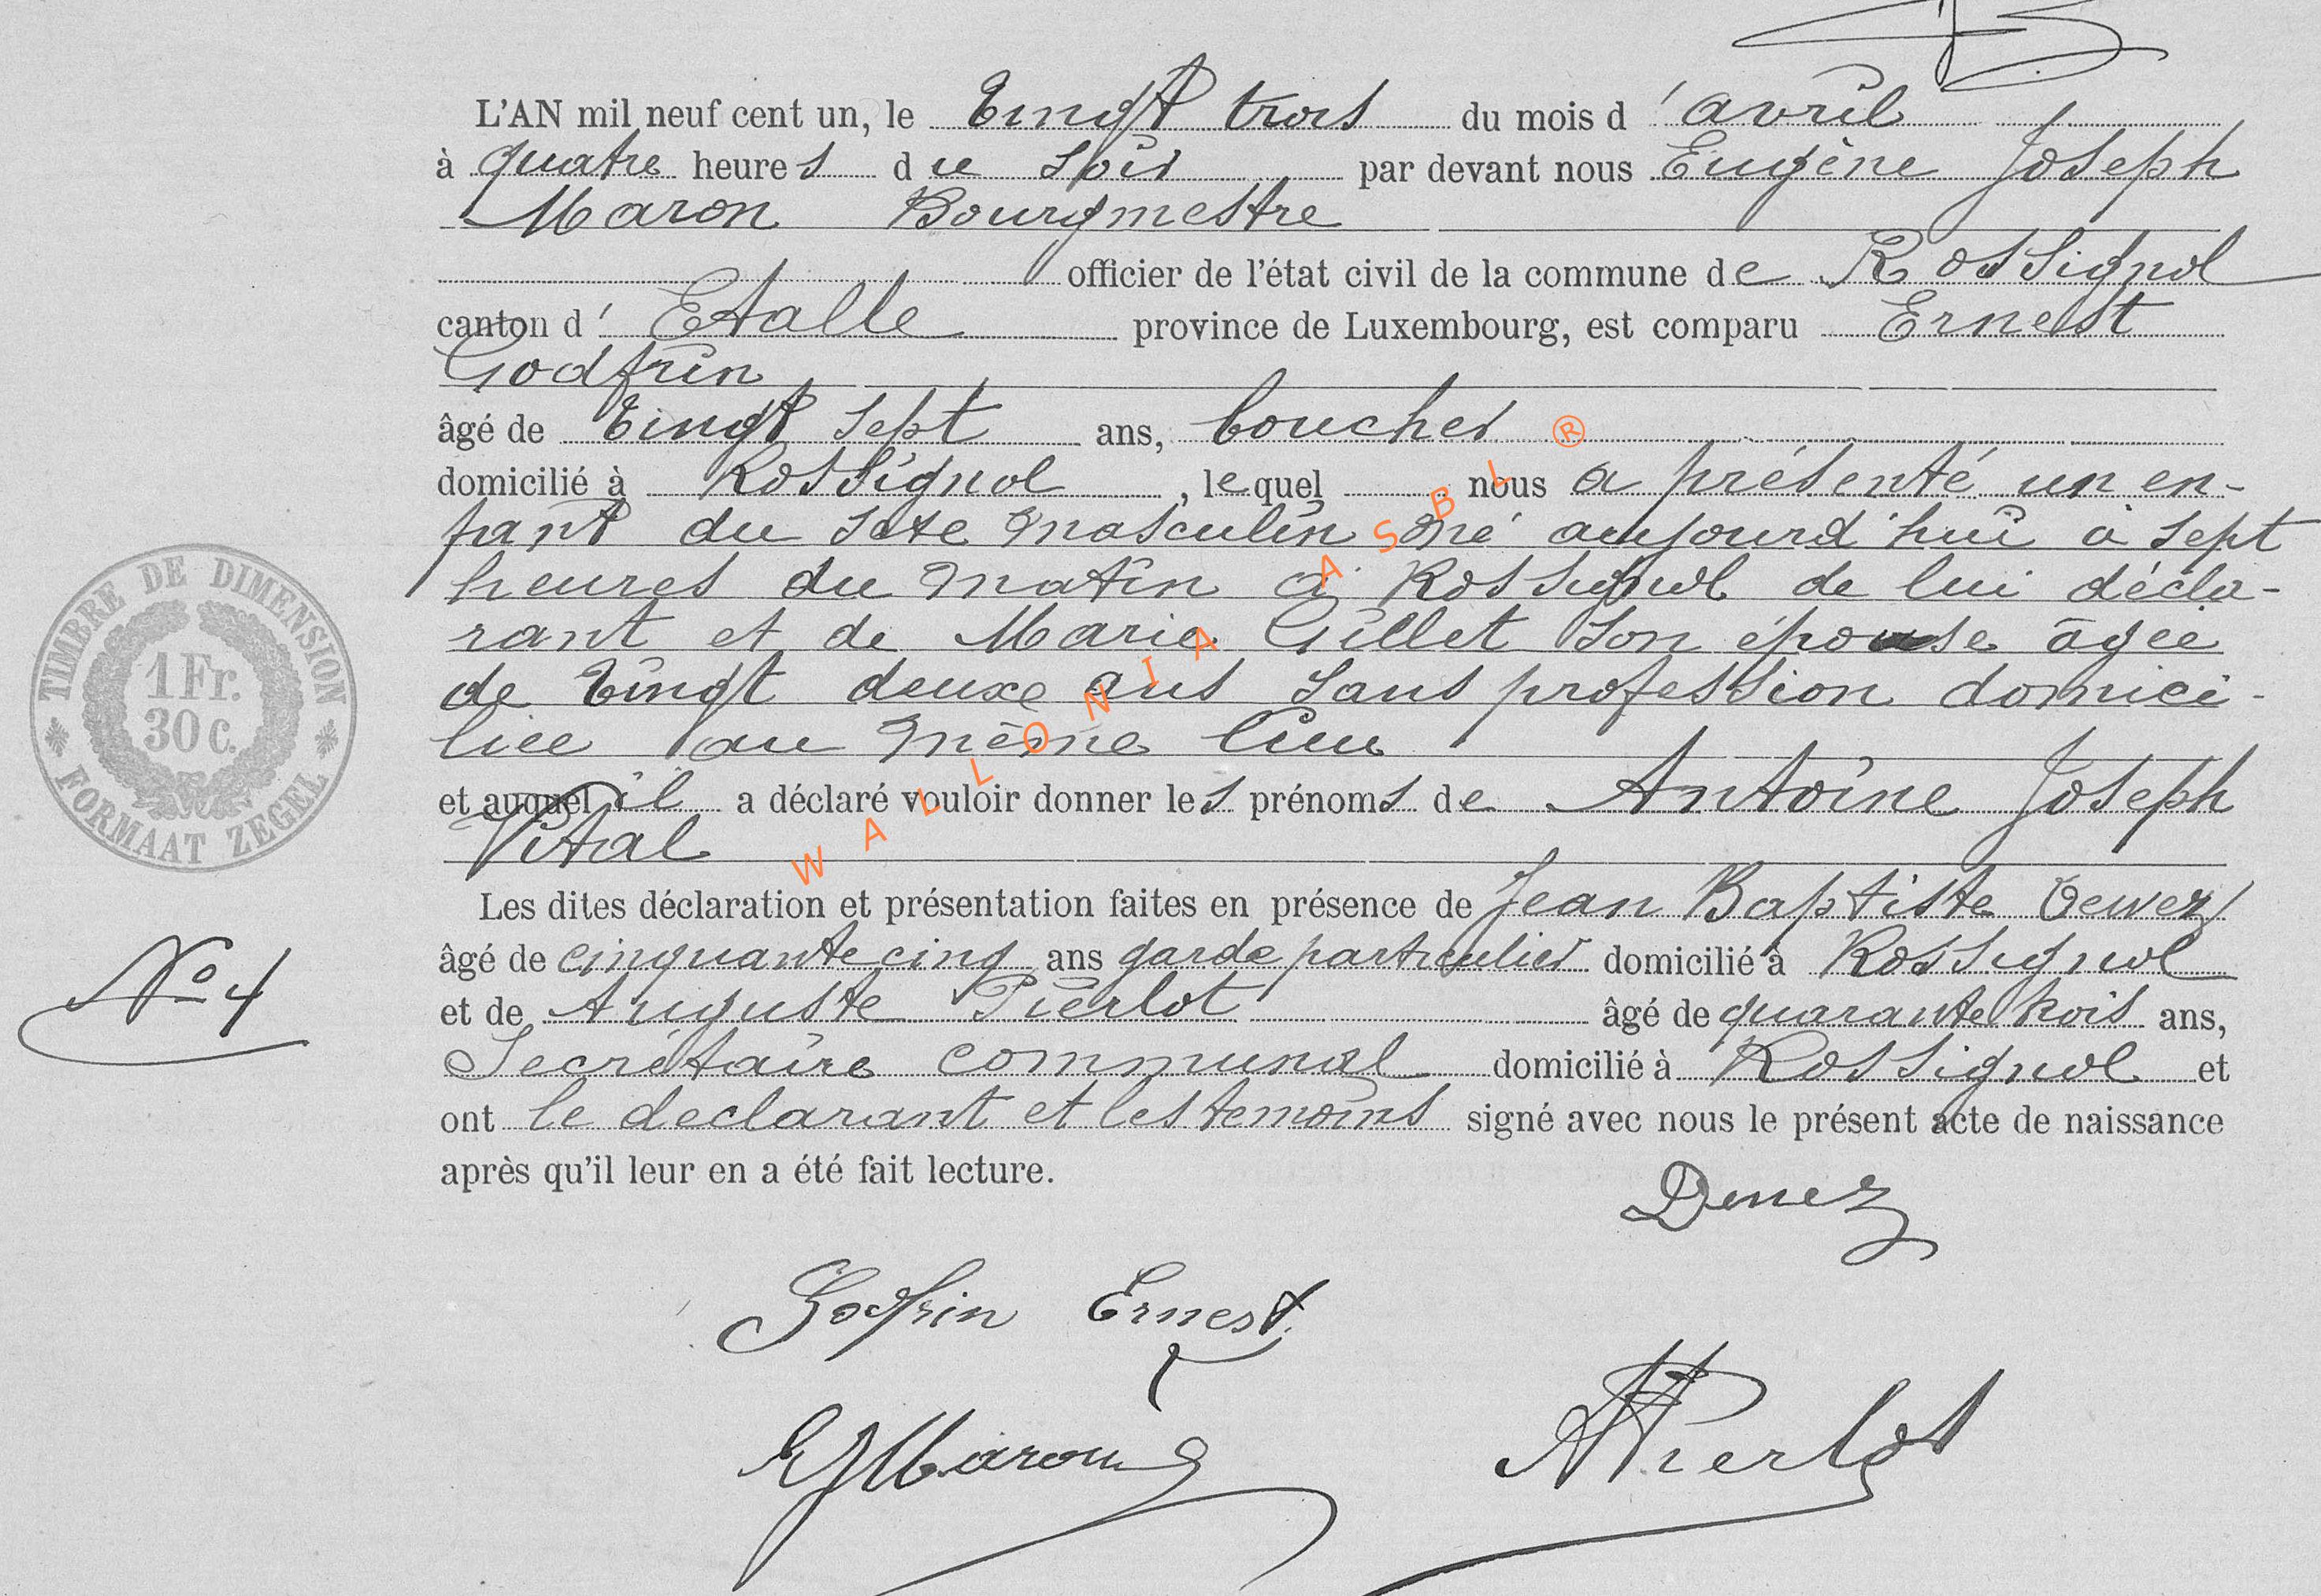 L'AN mil neuf cent un, le Vingt trois du mois d'avril
à quatre heures du soir par devant nous Eugène Joseph
Maron Bourgmestre
officier de l'état civil de la commune de Rossignol
canton d'Etalle province de Luxembourg, est comparu Ernest
Godfrin
âgé de Vingt sept ans, boucher
domicilié à Rossignol, lequel nous a présenté un en-
fant du sexe masculin né aujourd'hui à sept
heures du matin à Rossignol de lui décla-
rant et de Marie Gillet son épouse âgée
de Vingt deux ans sans profession domici-
liée au même lieu
et auquel il a déclaré vouloir donner les prénoms de Antoine Joseph
Vital
Les dites déclaration et présentation faites en présence de Jean Baptiste
âgé de cinquante cinq ans garde particulier domicilié à Rossignol
et de Auguste Pierlot âgé de quarante trois ans,
Secrétaire communal domicilié à Rossignol et
ont le declarant et les temoins signé avec nous le présent acte de naissance
après qu'il leur en a été fait lecture.
Godfrin Ernest
EJMaron
APierlot
N° 4
TIMBRE DE DIMENSION
1 Fr.
30 c.
FORMAAT ZEGEL
WALLONIA ASBL ®